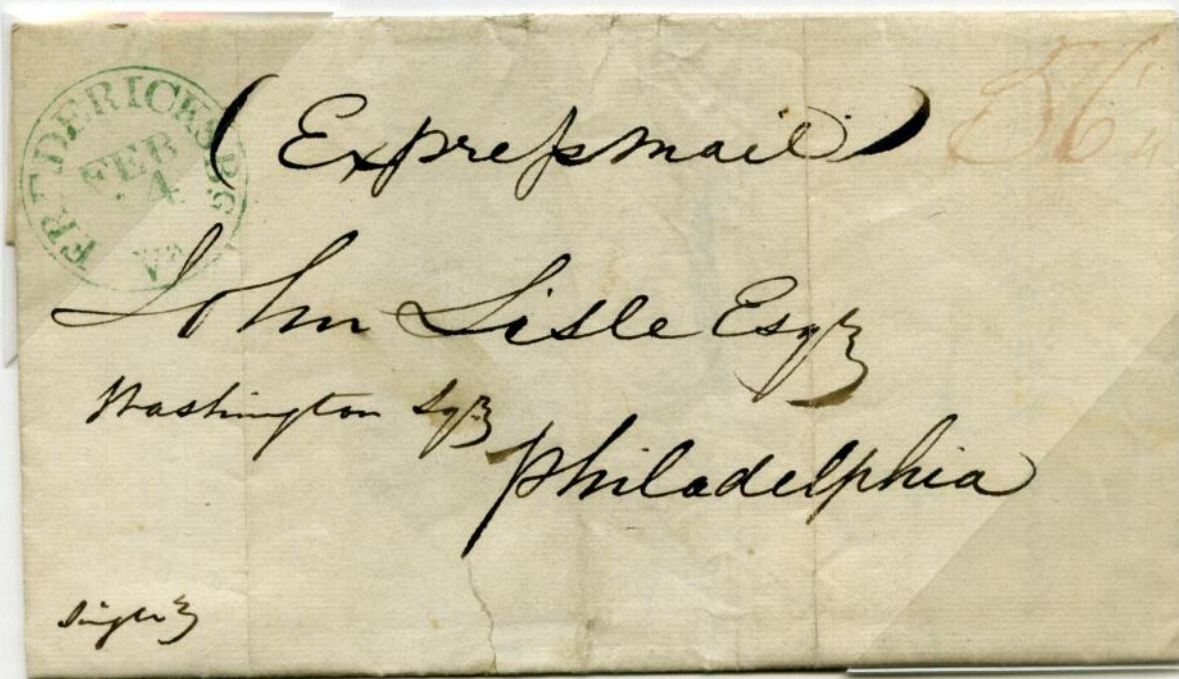 FREDERICKSBG
FEB
4
Va
(Expreſsmail)
56
John Lisle Esqr
Washington Sqr
Philadelphia
Single